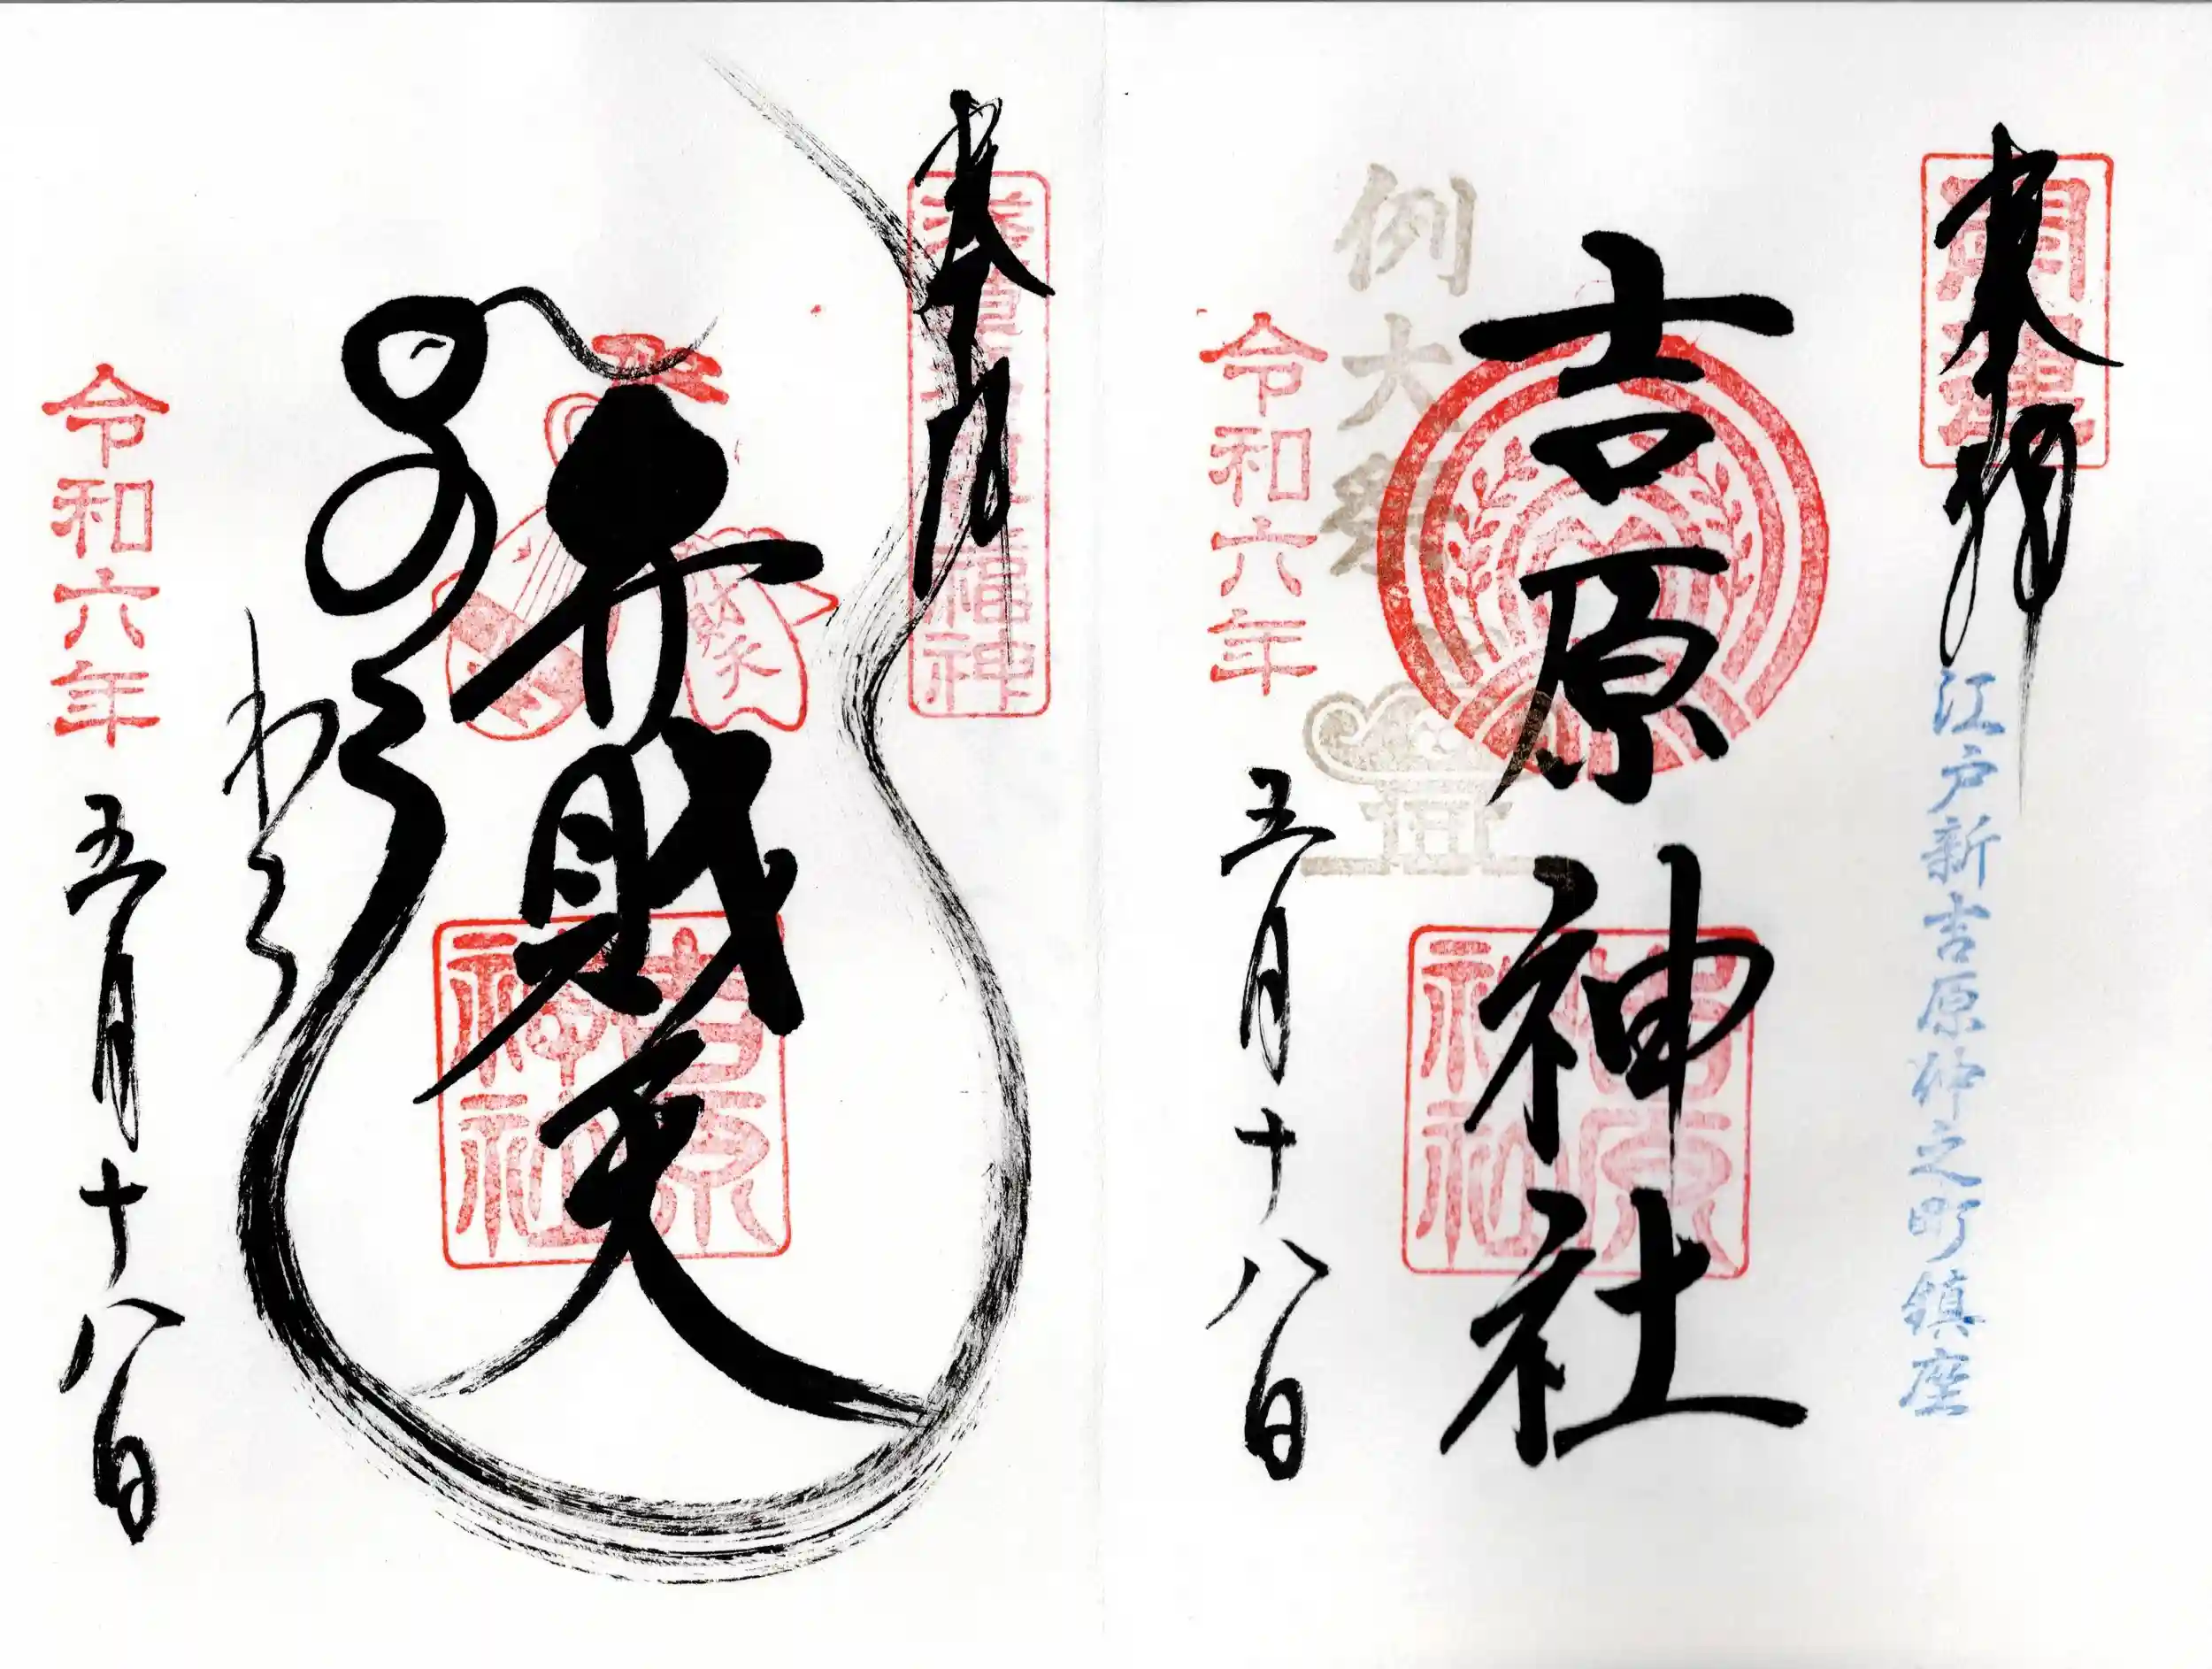 奉拝
開運
江戸新吉原仲之町鎮座
吉原神社
吉原神社
例大祭
令和六年五月十八日
奉拝
浅草名所七福神
弁財天
吉原神社
令和六年五月十八日